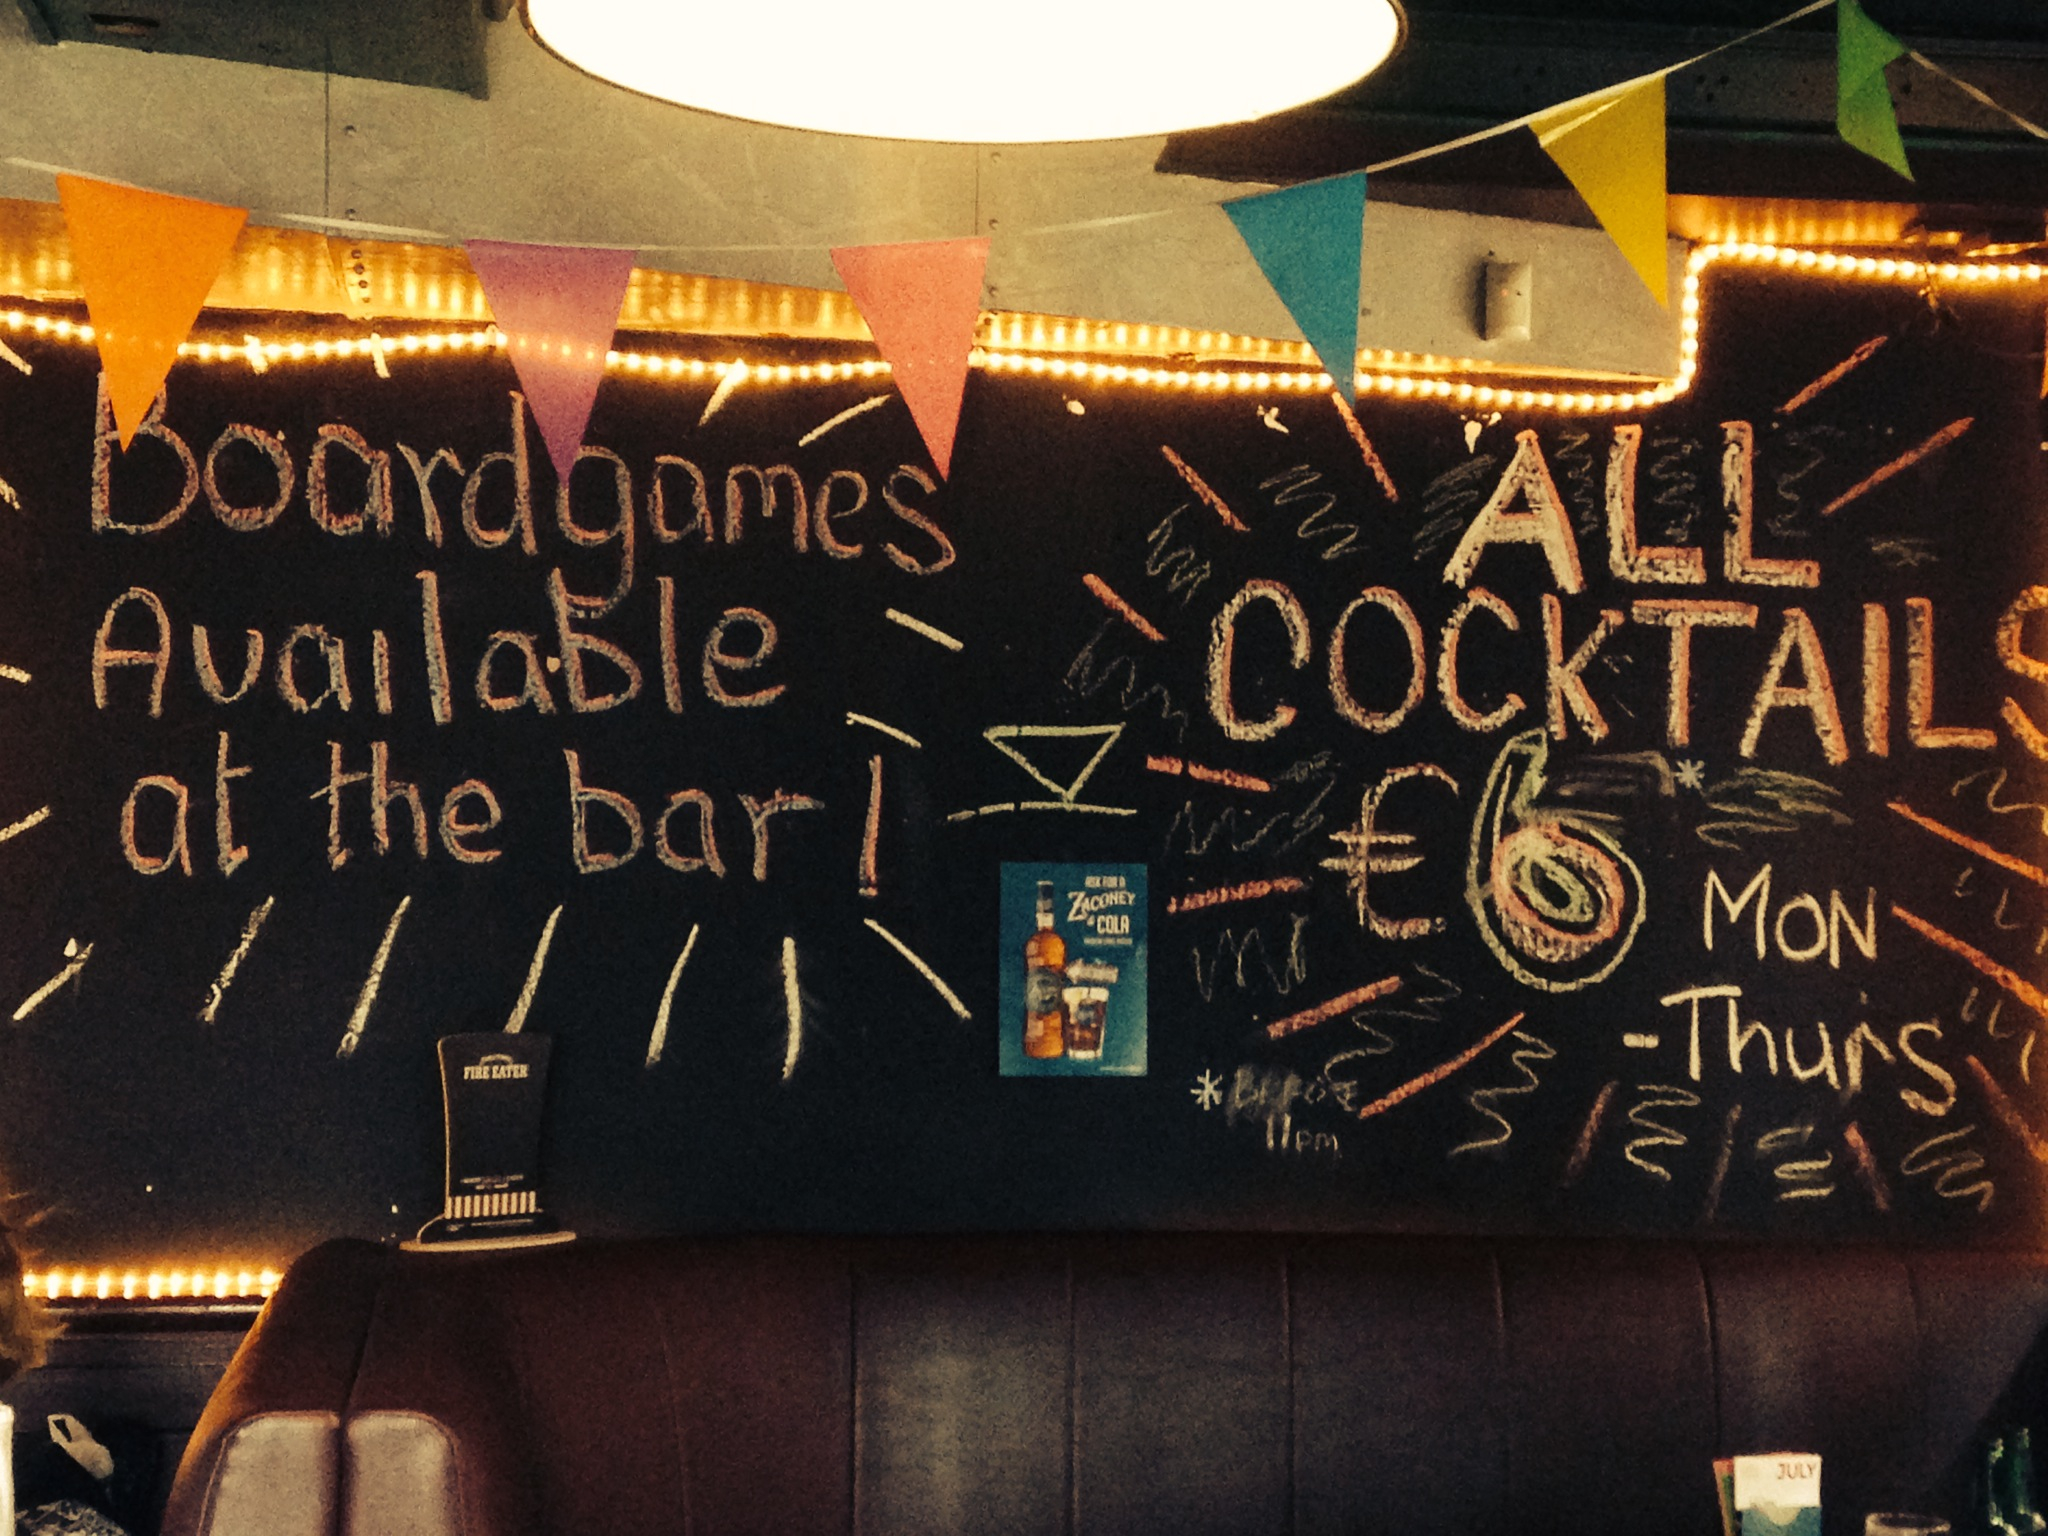 Boardgames
Available
at the bar!
ALL
COCKTAILS
€6*
MON
-Thurs
*BEFORE
11pm
ASK FOR A
ZACONEY
& COLA
FIRE EATER
JULY